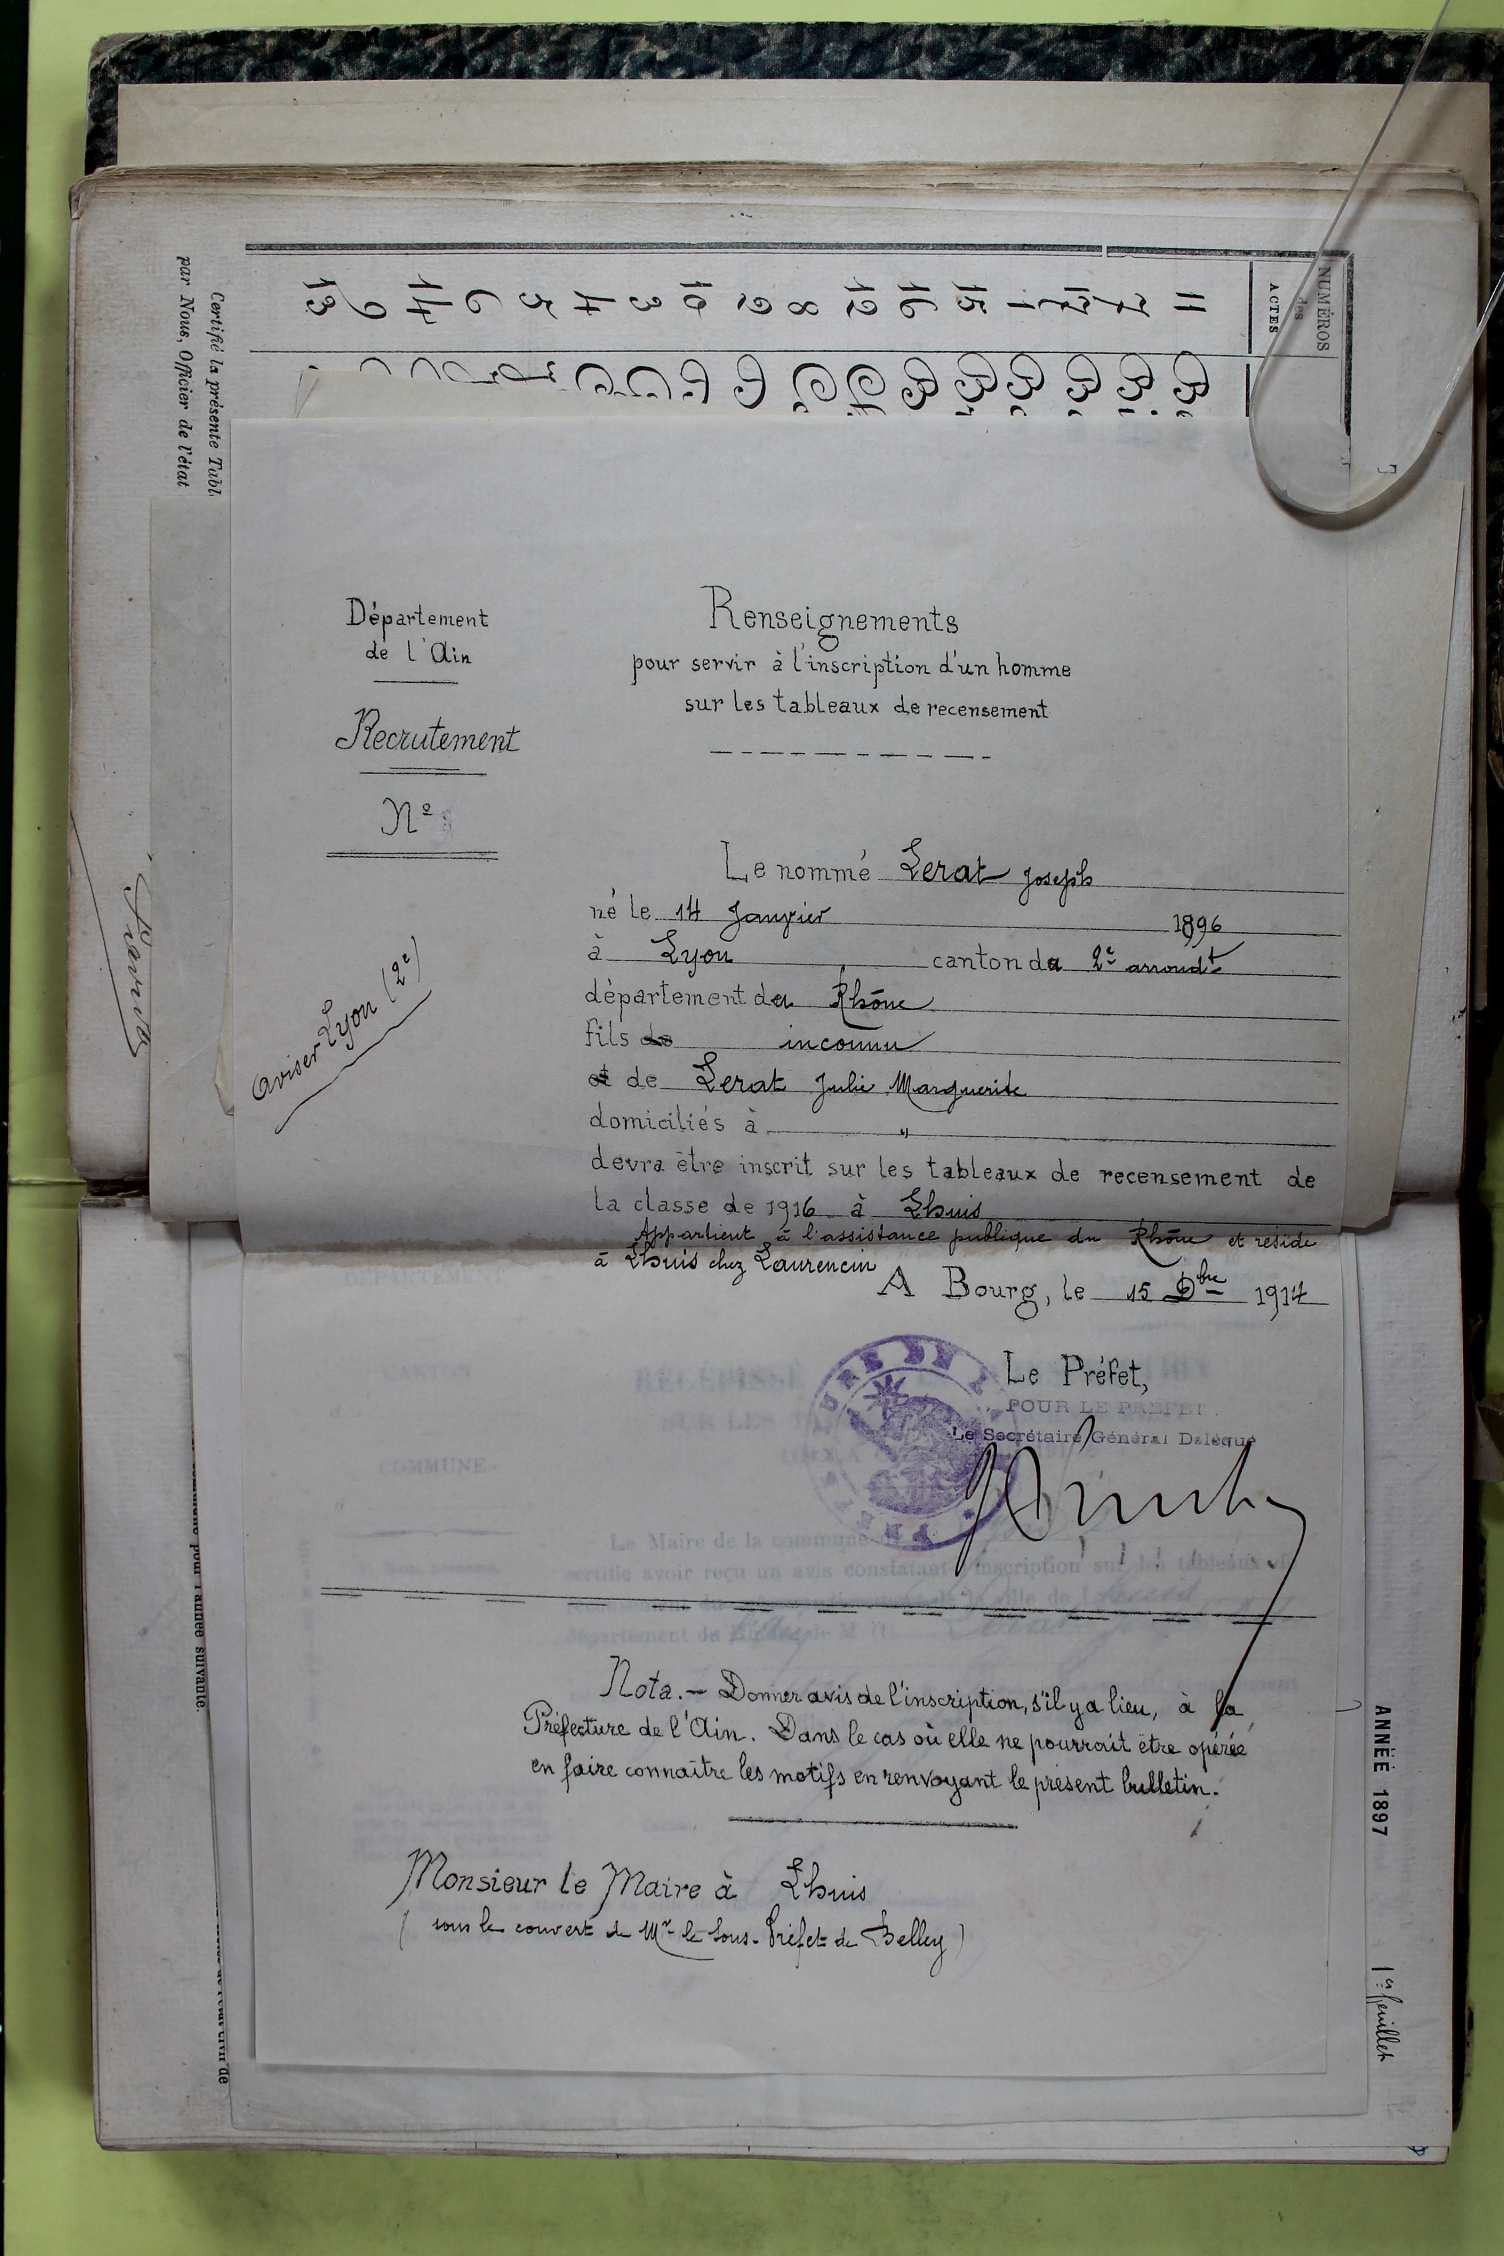 NUMÉROS
des
ACTES
11
7
1
15
16
12
8
2
10
3
4
5
6
14
9
13
Certifié la présente Tabl
par Nous, Officier de l'état
Département
de l'Ain
Recrutement
Nº
Aviser Lyon (2e)
Renseignements
pour servir à l'inscription d'un homme
sur les tableaux de recensement
Le nommé Lerat Joseph
né le 14 Janvier 1896
à Lyon canton du 2e arrondt
département du Rhône
fils de inconnu
et de Lerat Julie Marguerite
domiciliés à "
devra être inscrit sur les tableaux de recensement de
la classe de 1916 à Lhuis
Appartient à l'assistance publique du Rhône et réside
à Lhuis chez Laurencin
A Bourg, le 15 Dbre 1914
Le Préfet,
POUR LE PRÉFET
Le Secrétaire Général Délégué
Nota. — Donner avis de l'inscription, s'il y a lieu, à la
Préfecture de l'Ain. Dans le cas où elle ne pourrait être opérée
en faire connaître les motifs en renvoyant le présent bulletin.
Monsieur le Maire à Lhuis
(sous le couvert de Mr le Sous-Préfet de Belley)
RÉCÉPISSÉ
SUR LES
CANTON
COMMUNE
Le Maire de la commune
certifie avoir reçu un avis constatant l'inscription sur les tableaux
pour l'année suivante.
ANNÉE 1897
1er feuillet